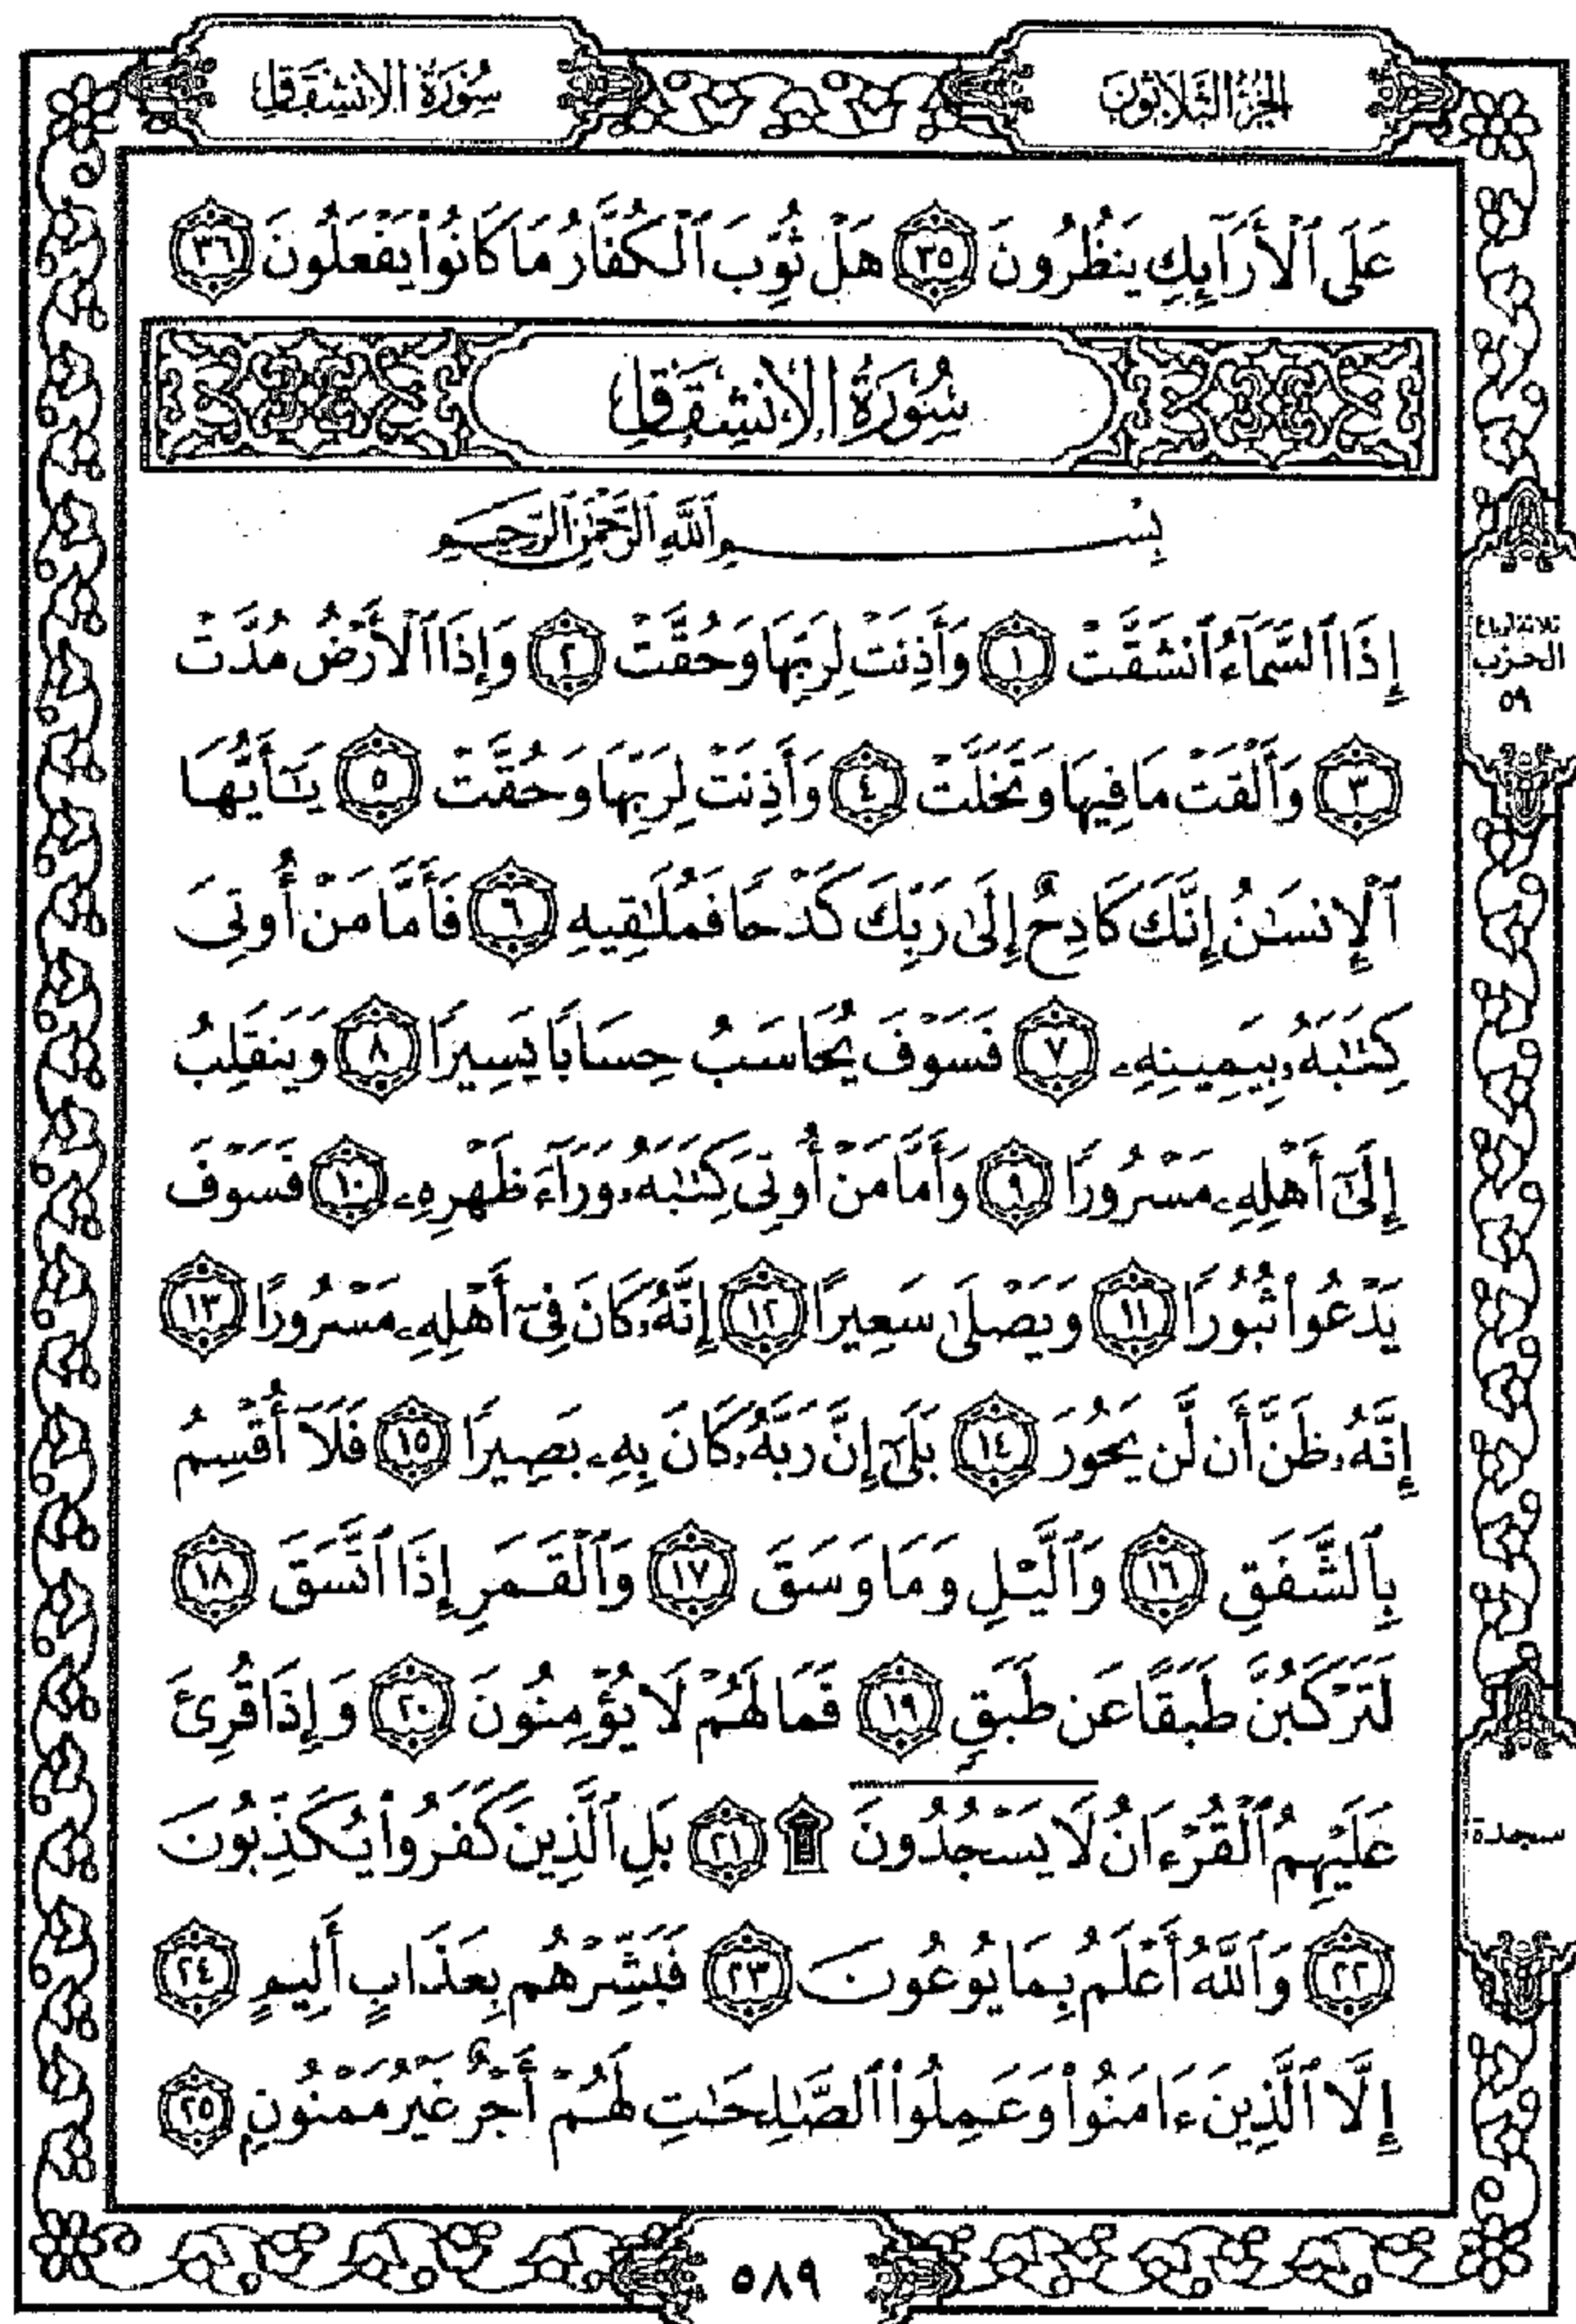 الجزء الثلاثون
سورة الانشقاق
عَلَى ٱلْأَرَآئِكِ يَنظُرُونَ ٣٥ هَلْ ثُوِّبَ ٱلْكُفَّارُ مَا كَانُوا۟ يَفْعَلُونَ ٣٦
سُورَةُ الانشِقَاقِ
بِسْمِ ٱللَّهِ ٱلرَّحْمَٰنِ ٱلرَّحِيمِ
إِذَا ٱلسَّمَآءُ ٱنشَقَّتْ ١ وَأَذِنَتْ لِرَبِّهَا وَحُقَّتْ ٢ وَإِذَا ٱلْأَرْضُ مُدَّتْ
ثلاثة ارباع
الحزب
٥٩
٣ وَأَلْقَتْ مَا فِيهَا وَتَخَلَّتْ ٤ وَأَذِنَتْ لِرَبِّهَا وَحُقَّتْ ٥ يَٰٓأَيُّهَا
ٱلْإِنسَٰنُ إِنَّكَ كَادِحٌ إِلَىٰ رَبِّكَ كَدْحًا فَمُلَٰقِيهِ ٦ فَأَمَّا مَنْ أُوتِىَ
كِتَٰبَهُۥ بِيَمِينِهِۦ ٧ فَسَوْفَ يُحَاسَبُ حِسَابًا يَسِيرًا ٨ وَيَنقَلِبُ
إِلَىٰٓ أَهْلِهِۦ مَسْرُورًا ٩ وَأَمَّا مَنْ أُوتِىَ كِتَٰبَهُۥ وَرَآءَ ظَهْرِهِۦ ١٠ فَسَوْفَ
يَدْعُوا۟ ثُبُورًا ١١ وَيَصْلَىٰ سَعِيرًا ١٢ إِنَّهُۥ كَانَ فِىٓ أَهْلِهِۦ مَسْرُورًا ١٣
إِنَّهُۥ ظَنَّ أَن لَّن يَحُورَ ١٤ بَلَىٰٓ إِنَّ رَبَّهُۥ كَانَ بِهِۦ بَصِيرًا ١٥ فَلَآ أُقْسِمُ
بِٱلشَّفَقِ ١٦ وَٱلَّيْلِ وَمَا وَسَقَ ١٧ وَٱلْقَمَرِ إِذَا ٱتَّسَقَ ١٨
لَتَرْكَبُنَّ طَبَقًا عَن طَبَقٍ ١٩ فَمَا لَهُمْ لَا يُؤْمِنُونَ ٢٠ وَإِذَا قُرِئَ
عَلَيْهِمُ ٱلْقُرْءَانُ لَا يَسْجُدُونَ ۩ ٢١ بَلِ ٱلَّذِينَ كَفَرُوا۟ يُكَذِّبُونَ
سجدة
٢٢ وَٱللَّهُ أَعْلَمُ بِمَا يُوعُونَ ٢٣ فَبَشِّرْهُم بِعَذَابٍ أَلِيمٍ ٢٤
إِلَّا ٱلَّذِينَ ءَامَنُوا۟ وَعَمِلُوا۟ ٱلصَّٰلِحَٰتِ لَهُمْ أَجْرٌ غَيْرُ مَمْنُونٍ ٢٥
٥٨٩